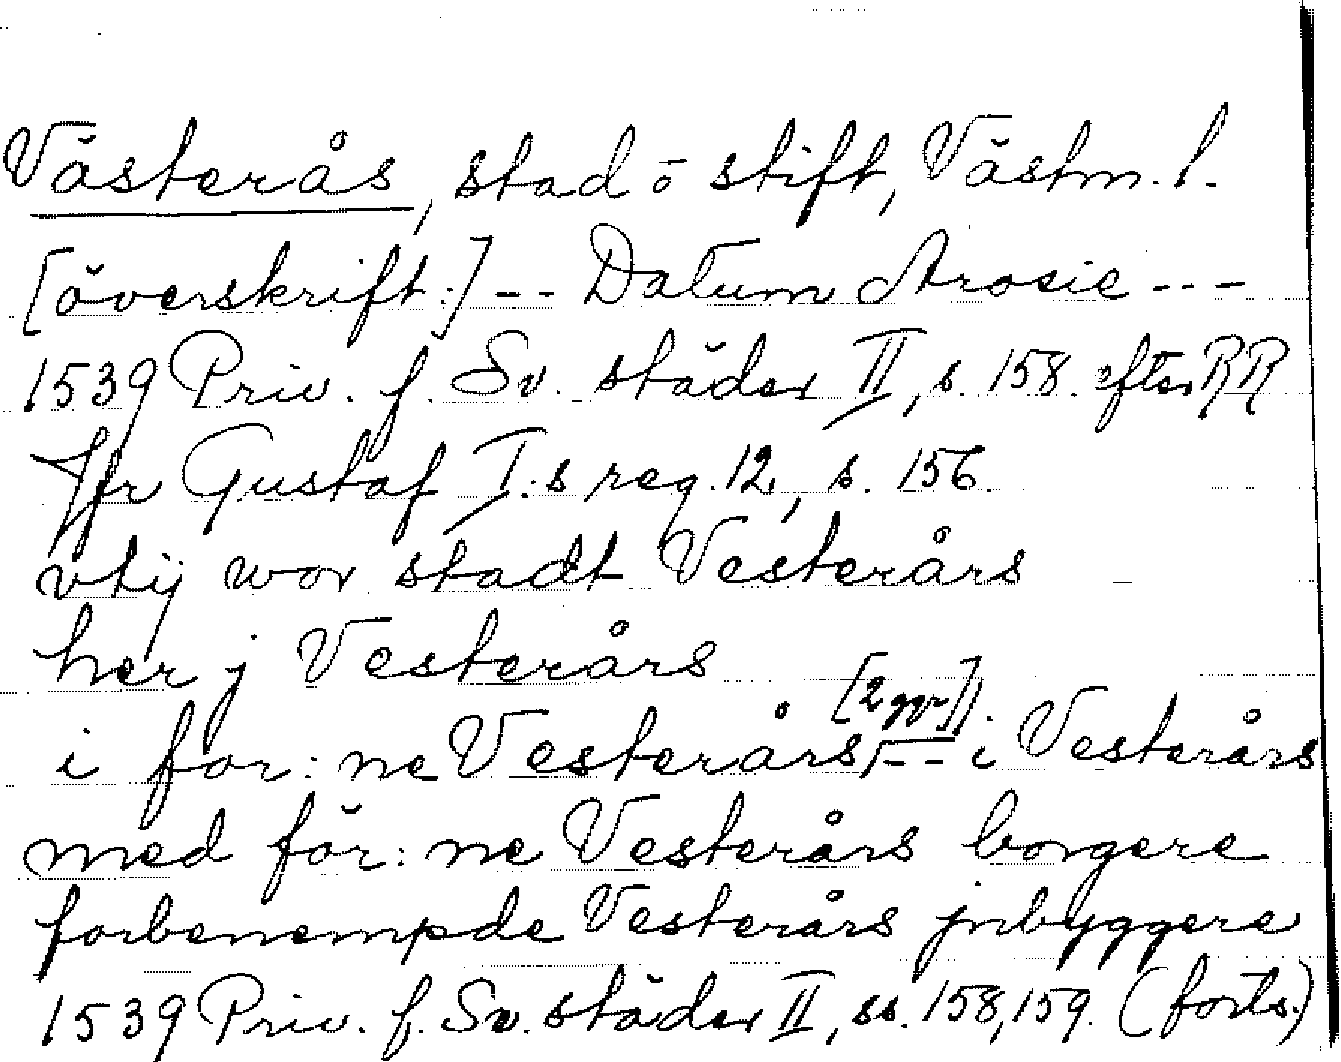 Västerås, stad o stift, Västm. l.
[överskrift:] -- Datum Arosie ---
1539 Priv. f. Sv. städer II, s. 158. efter RR
Jfr Gustaf I:s reg. 12, s. 156.
vtij wor stadt Vesterårs
her j Vesterårs
i for:ne Vesterårs, [2 ggr] -- i Vesterårs
med för:ne Vesterårs borgere
forbenempde Vesterårs jnbyggere
1539 Priv. f. Sv. städer II, ss. 158, 159. (forts.)